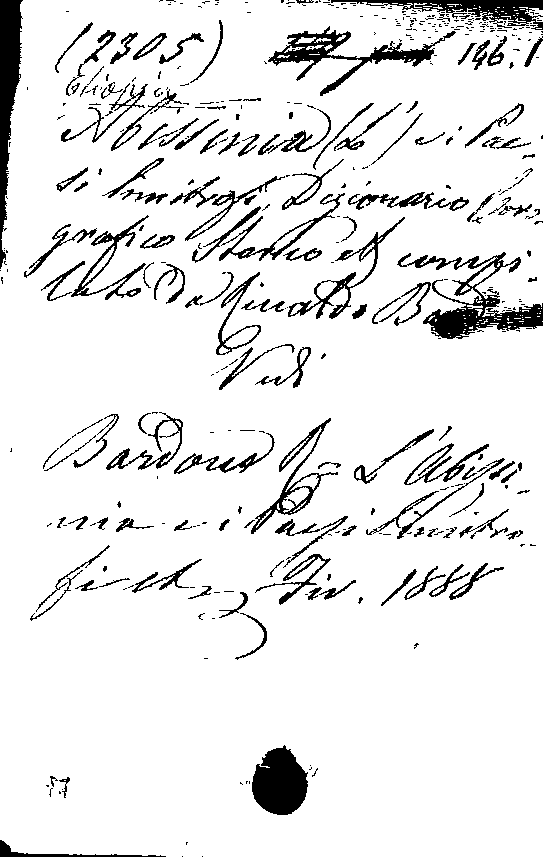 (2305) 146.1
Etiopia
Abissinia (L') e i Pae-
si limitrofi, Dizionario Coro-
grafico Storico etc compi-
lato da Rinaldo
Vedi
Bardone R = L'Abissi-
nia e i Paesi Limitro-
fi etc, Fir. 1888